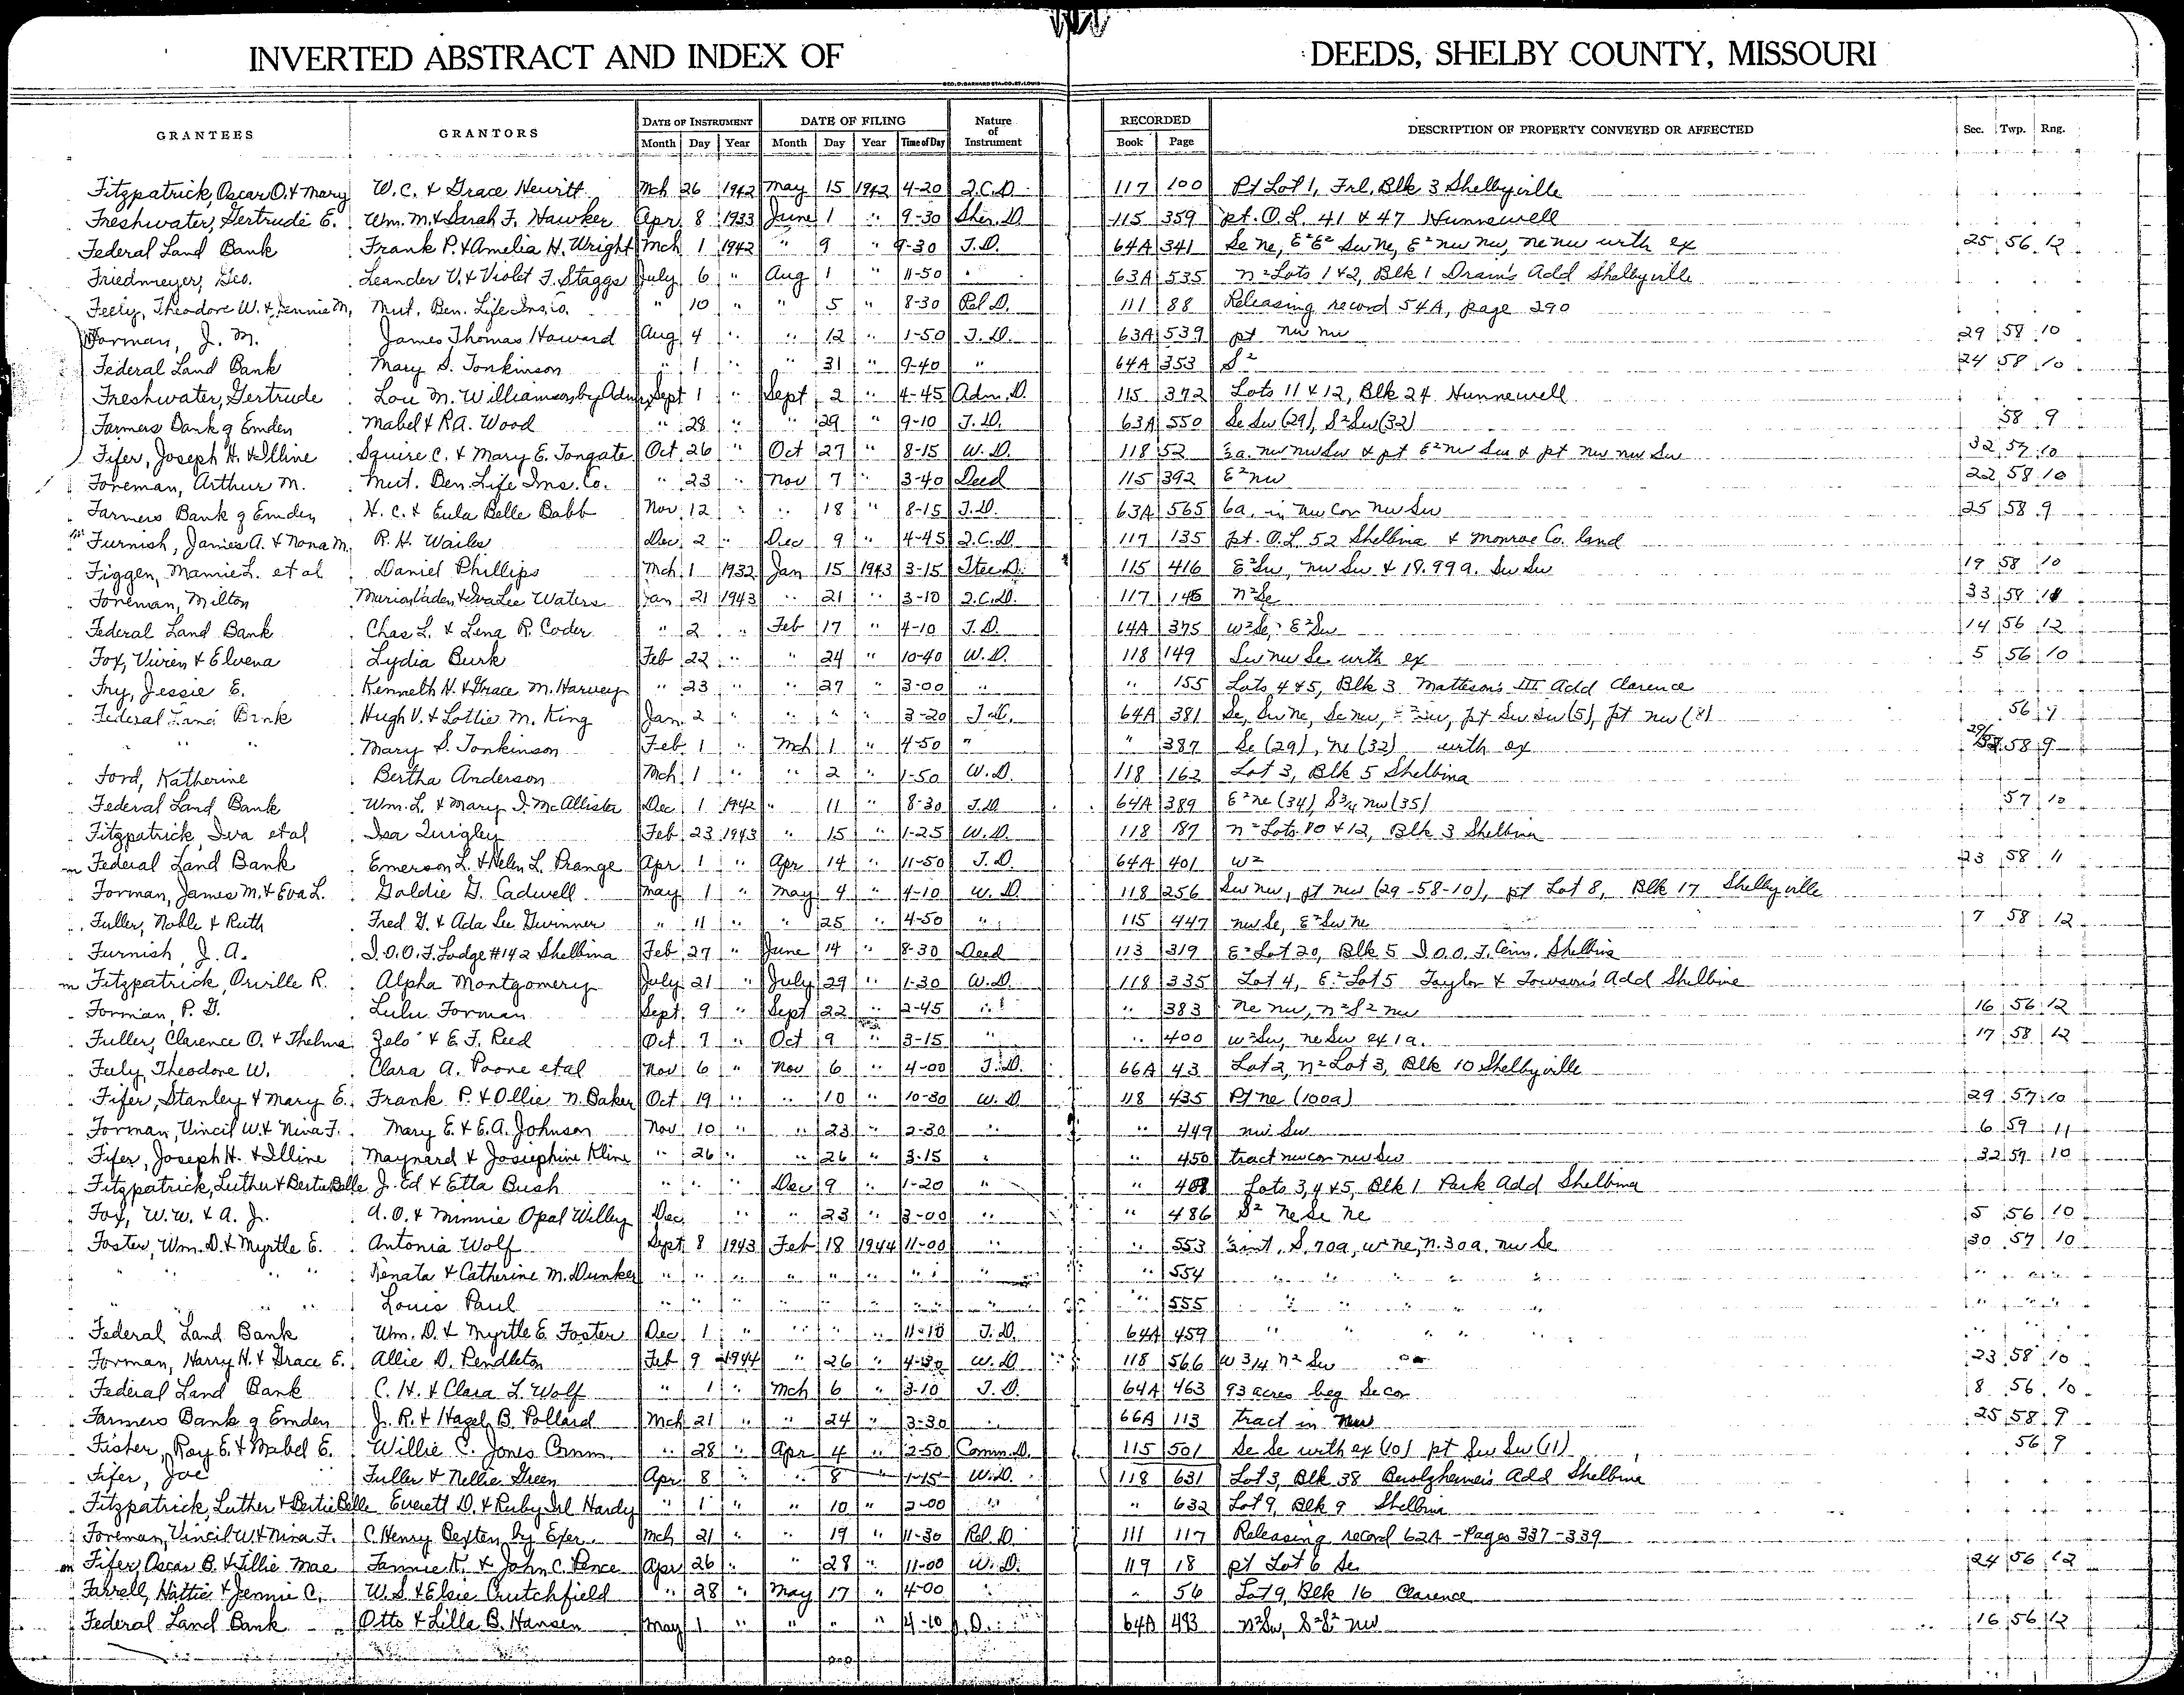 INVERTED ABSTRACT AND INDEX OF DEEDS, SHELBY COUNTY, MISSOURI
GRANTEES GRANTORS DATE OF INSTRUMENT DATE OF FILING Nature of Instrument RECORDED DESCRIPTION OF PROPERTY CONVEYED OR AFFECTED Sec. Twp. Rng.
Month Day Year Month Day Year Time of Day Book Page
Fitzpatrick, Oscar O. & Mary W. C. & Grace Hewitt Mch 26 1942 May 15 1942 4-20 Q.C.D. 117 100 Pt Lot 1, Frl. Blk 3 Shelbyville
Freshwater, Gertrude E. Wm. M. & Sarah F. Hawker Apr 8 1933 June 1 " 9-30 Sher. D. 115 359 pt. O.L. 41 & 47 Hunnewell
Federal Land Bank Frank P. & Amelia H. Wright Mch 1 1942 " 9 " 9-30 T.D. 64A 341 Se ne, E²E² Sw ne, E² nw nw, ne nw with ex 25 56 12
Friedmeyer, Geo. Leander V. & Violet F. Staggs July 6 " Aug 1 " 11-50 " 63A 535 N² Lots 1 & 2, Blk 1 Drain's Add Shelbyville
Feely, Theodore W. & Jennie M. Mut. Ben. Life Ins. Co. " 10 " " 5 " 8-30 Rel D. 111 88 Releasing record 54A, page 290
Forman, J. M. James Thomas Howard Aug 4 " " 12 " 1-50 T.D. 63A 539 pt nw nw 29 58 10
Federal Land Bank Mary S. Tonkinson " 1 " " 31 " 9-40 " 64A 353 S² 24 58 10
Freshwater, Gertrude Lou M. Williamson by Adm. Sept 1 " Sept 2 " 4-45 Adm. D. 115 372 Lots 11 & 12, Blk 24 Hunnewell
Farmers Bank of Emden Mabel & R.A. Wood " 28 " " 29 " 9-10 T.D. 63A 550 Se Sw (29), S² Sw (32) 58 9
Fifer, Joseph H. & Illine Squire C. & Mary E. Tongate Oct 26 " Oct 27 " 8-15 W.D. 118 52 3a. nw nw Sw & pt E² nw Sw & pt nw nw Sw 32 57 10
Foreman, Arthur M. Mut. Ben. Life Ins. Co. " 23 " Nov 7 " 3-40 Deed 115 392 E² nw 22 58 10
Farmers Bank of Emden H. C. & Eula Belle Babb Nov 12 " " 18 " 8-15 T.D. 63A 565 6a. in nw cor nw Sw 25 58 9
Furnish, James A. & Nona M. R. H. Wailes Dec 2 " Dec 9 " 4-45 Q.C.D. 117 135 pt. O.L. 52 Shelbina & Monroe Co. land
Figgen, Mamie L. et al Daniel Phillips Mch 1 1932 Jan 15 1943 3-15 Stee D. 115 416 E² Sw, nw Sw & 18.99 a. Sw Sw 19 58 10
Foreman, Milton Marion Vaden & Iva Lee Waters Jan 21 1943 " 21 " 3-10 Q.C.D. 117 145 N² Se 33 58 11
Federal Land Bank Chas L. & Lena R. Coder " 2 " Feb 17 " 4-10 T.D. 64A 375 W² Se, E² Sw 14 56 12
Fox, Viven & Elvena Lydia Burk Feb 22 " " 24 " 10-40 W.D. 118 149 Sw nw Se with ex 5 56 10
Fry, Jessie E. Kenneth H. & Grace M. Harvey " 23 " " 27 " 3-00 " " 155 Lots 4 & 5, Blk 3 Matteson's III Add Clarence
Federal Land Bank Hugh V. & Lottie M. King Jan 2 " " " " 3-20 T.D. 64A 381 Se, Sw ne, Se nw, E² Sw, pt Sw Sw (5), pt nw (8) 56 9
" " " Mary S. Tonkinson Feb 1 " Mch 1 " 4-50 " " 387 Se (29), ne (32) with ex 29/32 58 9
Ford, Katherine Bertha Anderson Mch 1 " " 2 " 1-50 W.D. 118 162 Lot 3, Blk 5 Shelbina
Federal Land Bank Wm. L. & Mary I. McAllister Dec 1 1942 " 11 " 8-30 T.D. 64A 389 E² ne (34) S¾ nw (35) 57 10
Fitzpatrick, Iva et al Isa Quigley Feb 23 1943 " 15 " 1-25 W.D. 118 187 N² Lots 10 & 12, Blk 3 Shelbina
Federal Land Bank Emerson L. & Helen L. Prange Apr 1 " Apr 14 " 11-50 T.D. 64A 401 W² 23 58 11
Forman, James M. & Eva L. Goldie G. Cadwell May 1 " May 4 " 4-10 W.D. 118 256 Sw nw, pt nw (29-58-10), pt Lot 8, Blk 17 Shelbyville
Fuller, Noble & Ruth Fred G. & Ada Lee Gwinner " 11 " " 25 " 4-50 " 115 447 nw Se, E² Sw ne 7 58 12
Furnish, J. A. I.O.O.F. Lodge #142 Shelbina Feb 27 " June 14 " 8-30 Deed 113 319 E² Lot 20, Blk 5 I.O.O.F. Cem. Shelbina
Fitzpatrick, Orville R. Alpha Montgomery July 21 " July 29 " 1-30 W.D. 118 335 Lot 4, E² Lot 5 Taylor & Towson's Add Shelbina
Forman, P. G. Lulu Forman Sept 9 " Sept 22 " 2-45 " " 383 Ne nw, N² S² nw 16 56 12
Fuller, Clarence O. & Thelma Zelo & E. F. Reed Oct 7 " Oct 9 " 3-15 " " 400 W² Sw, ne Sw ex 1a. 17 58 12
Fuly, Theodore W. Clara A. Poore et al Nov 6 " Nov 6 " 4-00 T.D. 66A 43 Lot 2, N² Lot 3, Blk 10 Shelbyville
Fifer, Stanley & Mary E. Frank P. & Ollie N. Baker Oct 19 " " 10 " 10-30 W.D. 118 435 Pt ne (100a) 29 57 10
Forman, Vincil W. & Nina F. Mary E. & E.A. Johnson Nov 10 " " 23 " 2-30 " " 449 nw Sw 6 59 11
Fifer, Joseph H. & Illine Maynard & Josephine Kline " 26 " " 26 " 3-15 " " 450 tract nw cor nw Sw 32 59 10
Fitzpatrick, Luther & Bertie Belle J. Ed & Etta Bush " " " Dec 9 " 1-20 " " Lots 3, 4 & 5, Blk 1 Park Add Shelbina
Fox, W. W. & A. J. A. O. & Minnie Opal Willey Dec " " 23 " 3-00 " " 486 S² Ne Se Ne 5 56 10
Foster, Wm. D. & Myrtle E. Antonia Wolf Sept 8 1943 Feb 18 1944 11-00 " " 553 int. S. 70a, W² ne, N. 30a. nw Se 30 57 10
" " Renata & Catherine M. Dunker " " " " " " " " " 554 " " " " " " " "
" " Louis Paul " " " " " " " " " 555 " " " " " " " "
Federal Land Bank Wm. D. & Myrtle E. Foster Dec 1 " " " " 11-10 T.D. 64A 459 " " " " " " " "
Forman, Harry H. & Grace E. Allie D. Pendleton Feb 9 1944 " 26 " 4-30 W.D. 118 566 W 3/4 N² Sw 23 58 10
Federal Land Bank C. H. & Clara L. Wolf " 1 " Mch 6 " 3-10 T.D. 64A 463 93 acres beg Se cor 8 56 10
Farmers Bank of Emden J. R. & Hazel B. Pollard Mch 21 " " 24 " 3-30 " 66A 113 tract in nw 25 58 9
Fisher, Roy E. & Mabel E. Willie C. Jones Comm. " 28 " Apr 4 " 2-50 Comm. D. 115 501 Se Se with ex (10) pt Sw Sw (11) 56 9
Fifer, Joe Fuller & Nellie Green Apr 8 " " 8 " 1-15 W.D. 118 631 Lot 3, Blk 38 Berolzheimer's Add Shelbina
Fitzpatrick, Luther & Bertie Belle Everett D. & Ruby Irl Hardy " 1 " " 10 " 2-00 " " 632 Lot 9, Blk 9 Shelbina
Foreman, Vincil W. & Nina F. C. Henry Bexten by Exer. Mch 21 " " 19 " 11-30 Rel. D. 111 117 Releasing record 62A - Pages 337-339
Fifer, Oscar B. & Lillie Mae Fannie K. & John C. Pence Apr 26 " " 28 " 11-00 W.D. 119 18 pt Lot 6 Se 24 56 12
Farrell, Hattie & Jennie C. W. S. & Elsie Crutchfield " 28 " May 17 " 4-00 " " 56 Lot 9, Blk 16 Clarence
Federal Land Bank Otto & Lilla B. Hansen May 1 " " " " 4-10 D. 64A 493 N² Sw, S² S² nw 16 56 12